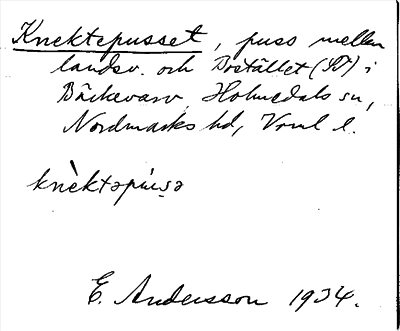 Knektepusset, puss mellan
landsv. och Bostället (SO) i
Bäckevarv, Holmedals sn,
Nordmarks hd, Vrml l.
knèktəpùsə
E. Andersson 1934.